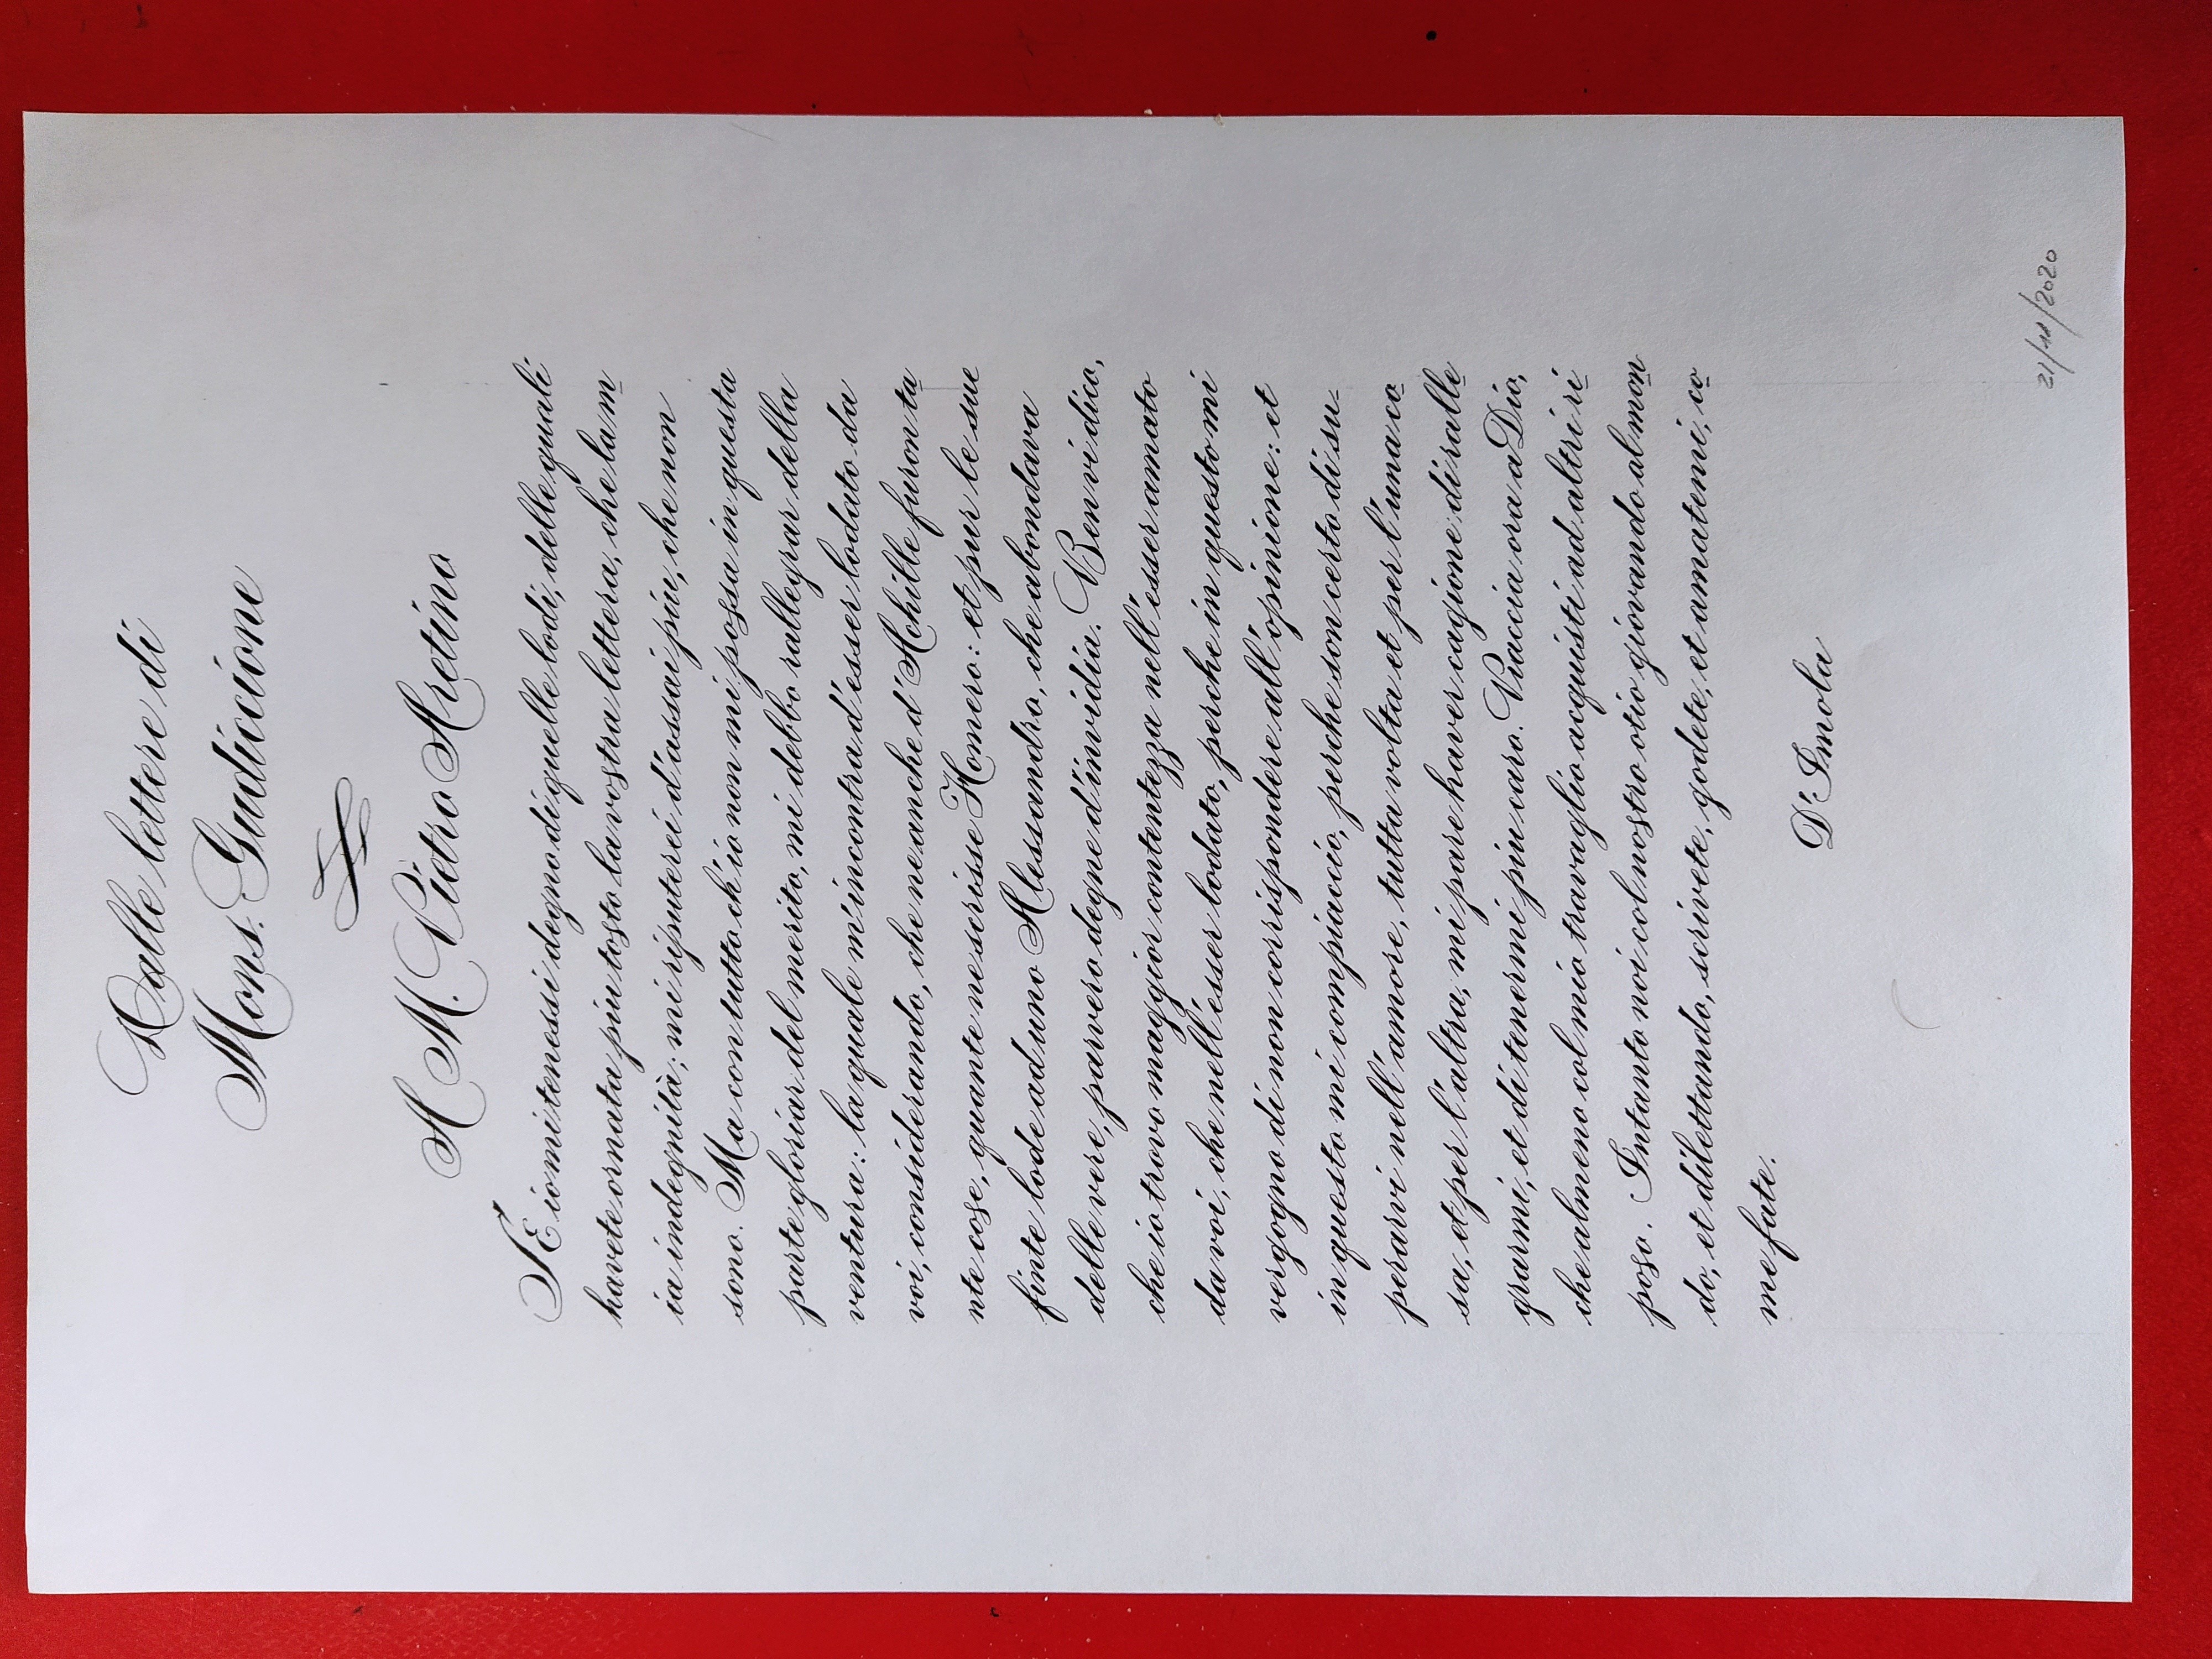 Dalle lettere di
Mons. Gudiccione
A M. Pietro Aretino
SE io mi tenessi degno di quelle lodi, delle quali
havete ornata piu tosto la vostra lettera, che la m
ia indegnità; mi riputerei d'assai piu, che non
sono. Ma con tutto ch'io non mi possa in questa
parte gloriar del merito, mi debbo rallegrar della
ventura: la quale m'incontra d'esser lodato da
voi, considerando, che ne anche d'Achille furon ta
nte cose, quante ne scrisse Homero: et pur le sue
finte lode ad uno Alessandro, che abondava
delle vere, parvero degne d'invidia. Ben vi dico,
che io trovo maggior contentezza nell'esser amato
da voi, che nell'esser lodato, perche in questo mi
vergogno di non corrispondere all'opinione: et
in questo mi compiaccio, perche son certo di su-
perarvi nell'amore, tutta volta et per l'una co
sa, et per l'altra, mi pare haver cagione di ralle
grarmi, et di tenermi piu caro. Piaccia ora a Dio,
che almeno col mio travaglio acquisti ad altri ri
poso. Intanto noi col nostro otio giovando al mon
do, et dilettando, scrivete, godete, et amatemi, co
me fate.
D'Imola